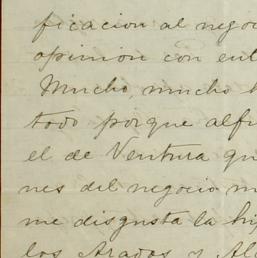 ficacion al negoc
opinion con ent
Mucho, mucho
todo porque alfi
el de Ventura qu
nes del negocio m
me disgusta la hi
los Arados y Al